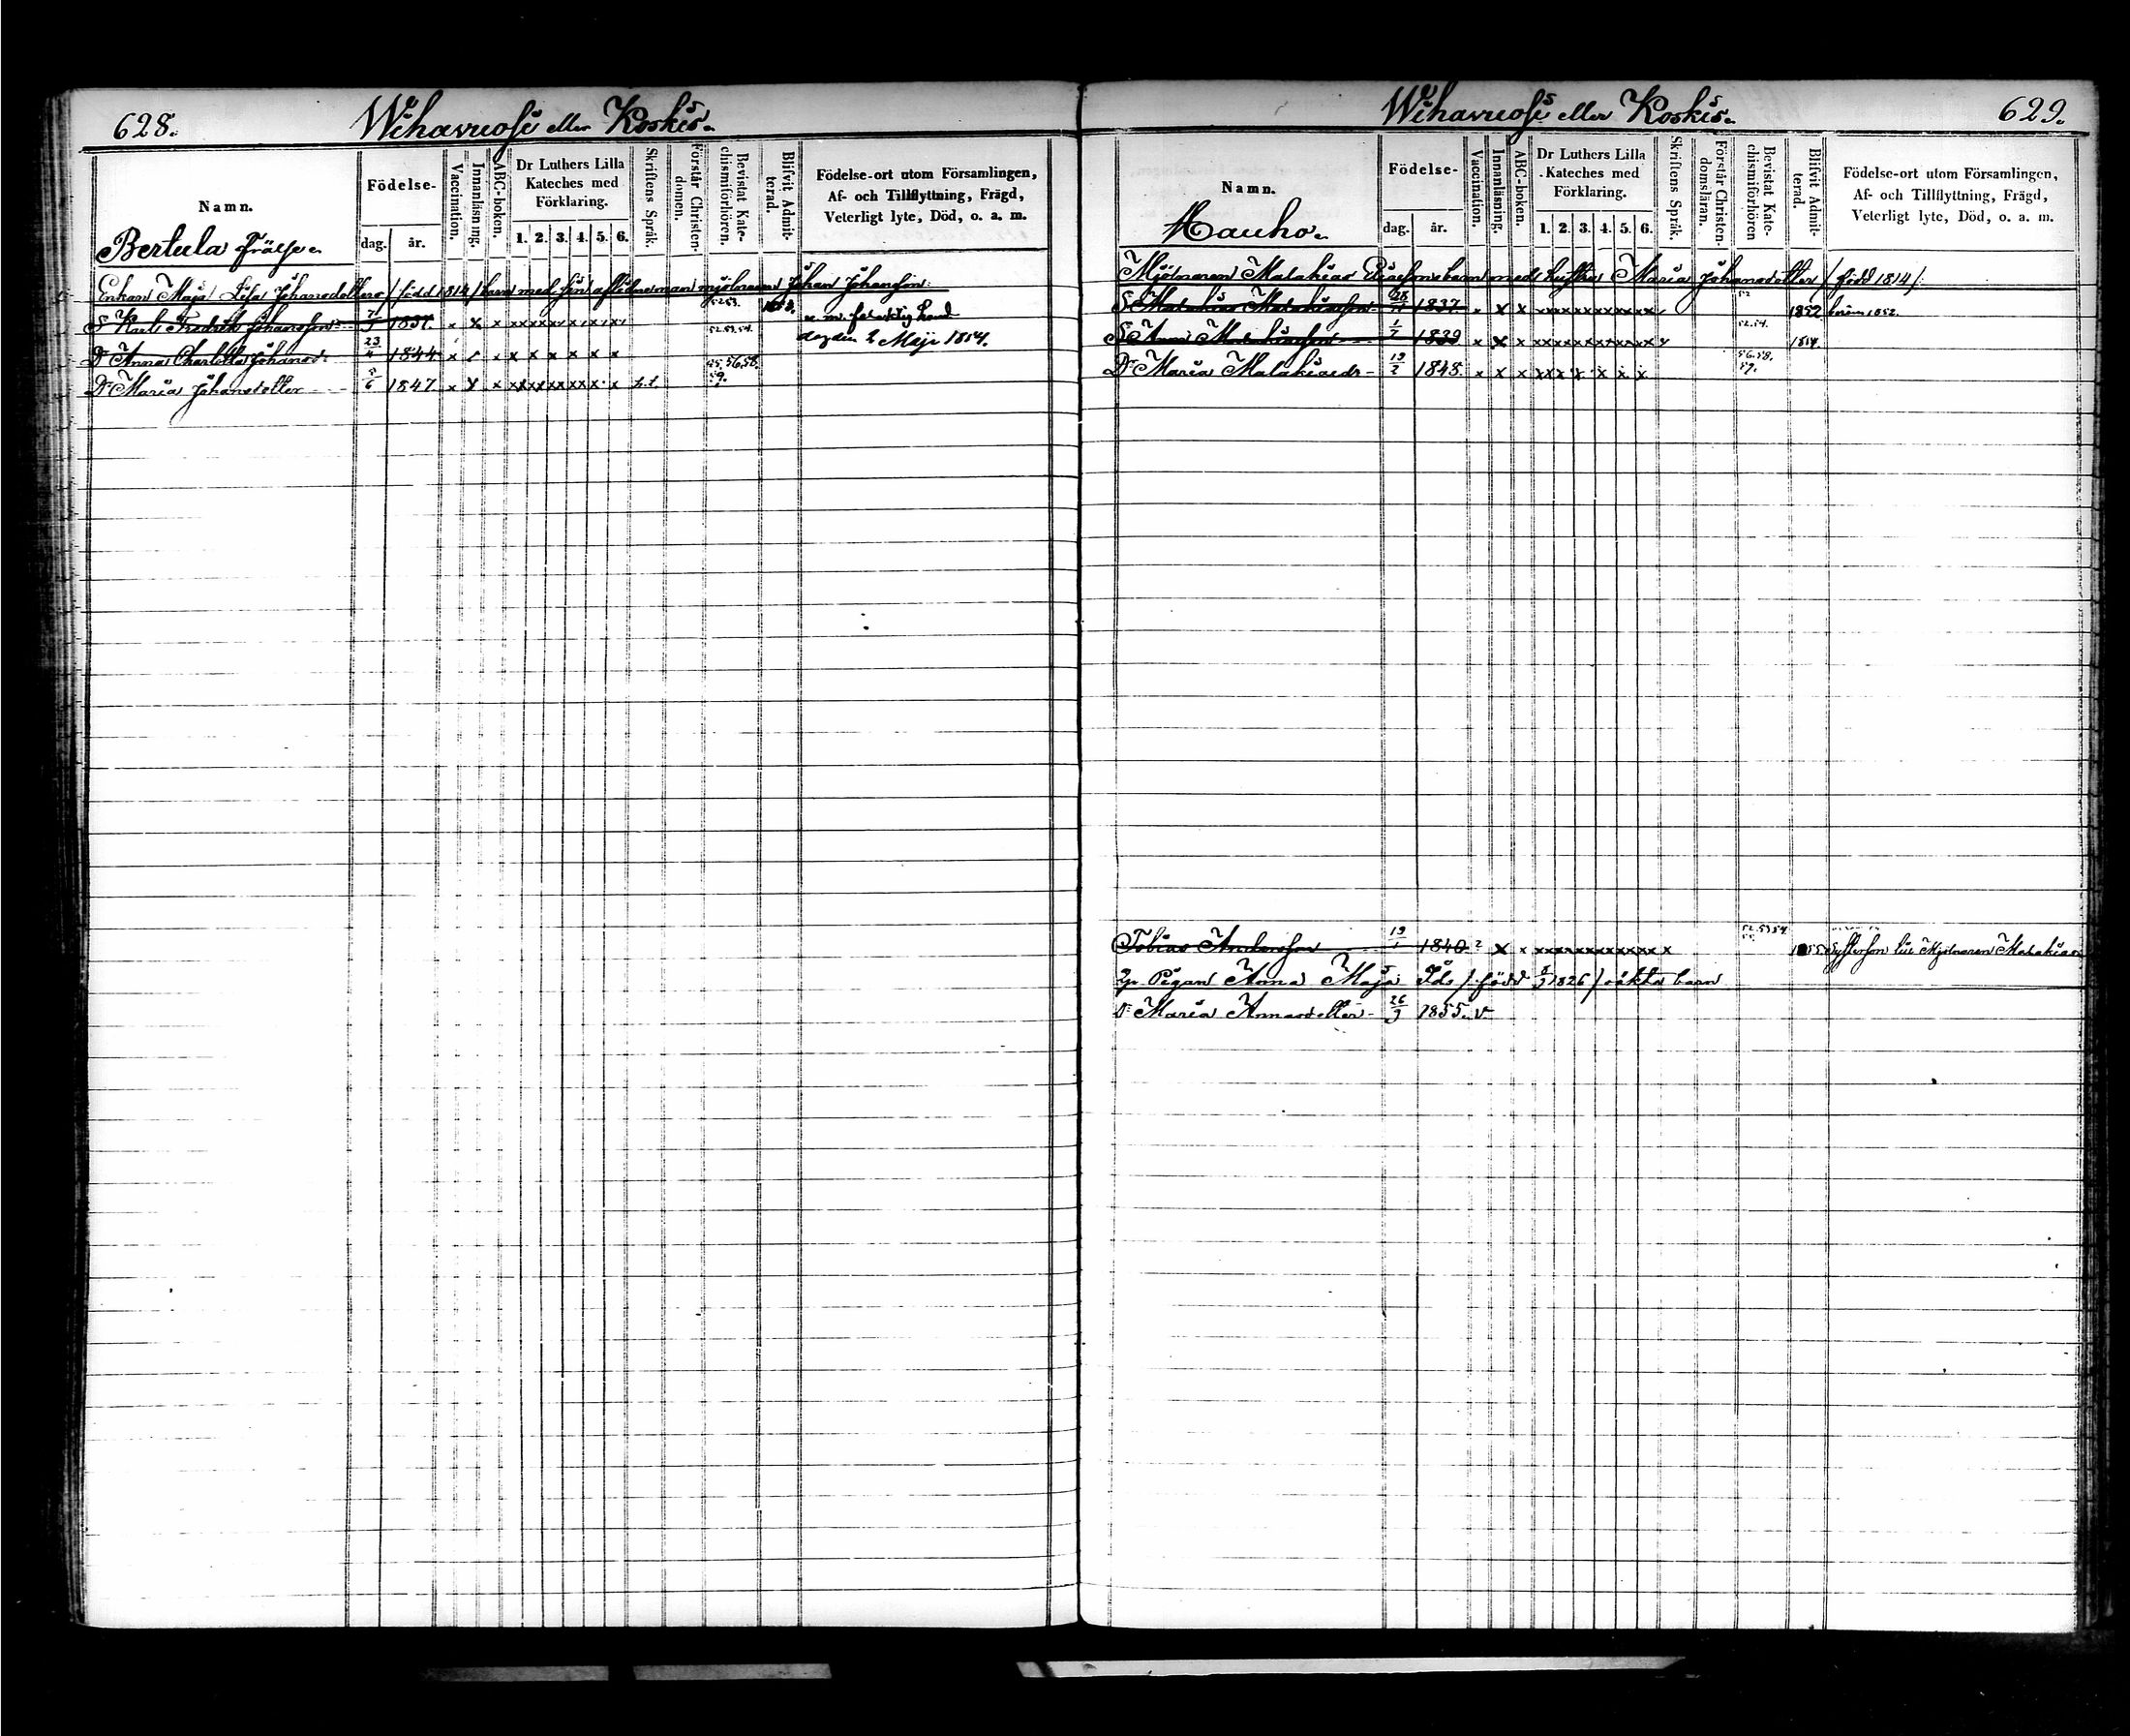 628. Wihavuosi eller Koskis.
Namn.
Födelse-
dag. år.
Vaccination.
Innanläsning.
ABC-boken.
Dr Luthers Lilla Kateches med Förklaring.
1. 2. 3. 4. 5. 6.
Skriftens Språk.
Förstår Christen-
domen.
Bevistat Kate-
chismiförhören.
Blifvit Admit-
terad.
Födelse-ort utom Församlingen,
Af- och Tillflyttning, Frägd,
Veterligt lyte, Död, o. a. m.
Bertula Frälse.
Enkan Maja Lisa Johansdotters / född 1814 / barn med sin aflidne man mjölnaren Johan Johansson:
S. Karl Fredrik Johansson 1837. x x x x x x x x x x 52.53.
D. Anna Charlotta Johansd. 23/4 1844 x x x x x x x x 52.53.54. den 2 Maji 1854.
D. Maria Johansdotter 5/6 1847. x x x x x x x x x x 55.56.58.
59.
Wihavuosi eller Koskis. 629.
Namn.
Födelse-
dag. år.
Vaccination.
Innanläsning.
ABC-boken.
Dr Luthers Lilla
Kateches med
Förklaring.
1. 2. 3. 4. 5. 6.
Skriftens Språk.
Förstår Christen-
domsläran.
Bevistat Kate-
chismiförhören
Blifvit Admit-
terad.
Födelse-ort utom Församlingen,
Af- och Tillflyttning, Frägd,
Veterligt lyte, Död, o. a. m.
Hauho.
Mjölnaren Malakias Eliassons barn med hustru Maria Johansdotter / född 1814 /:
S. Malakias Malakiasson 1837 x x x x x x x x x x 52 1852
S. Malakiasson 1/7 1839 x x x x x x x x x x 52.54. 1854
D. Maria Malakiasdr 19/2 1848. x x x x x x x x x 56.58.
59.
Tobias Andersson 19/1 1840 ? x x x x x x x x x x 52.53.54
55. Systerson till Mjölnaren Malakias
Pigan Anna Maja Isds / född 1826 / oäkta barn
D. Maria Annasdotter 26/9 1855. v.